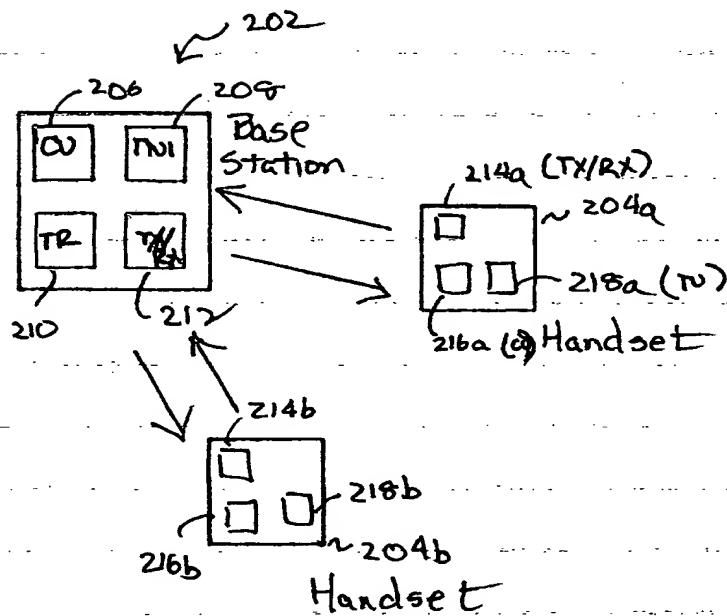 202
206 208
CU TNI
Base
Station
TR TX/
RX
210 212
214a (TX/RX)
204a
218a (TU)
216a Handset
214b
218b
216b
204b
Handset